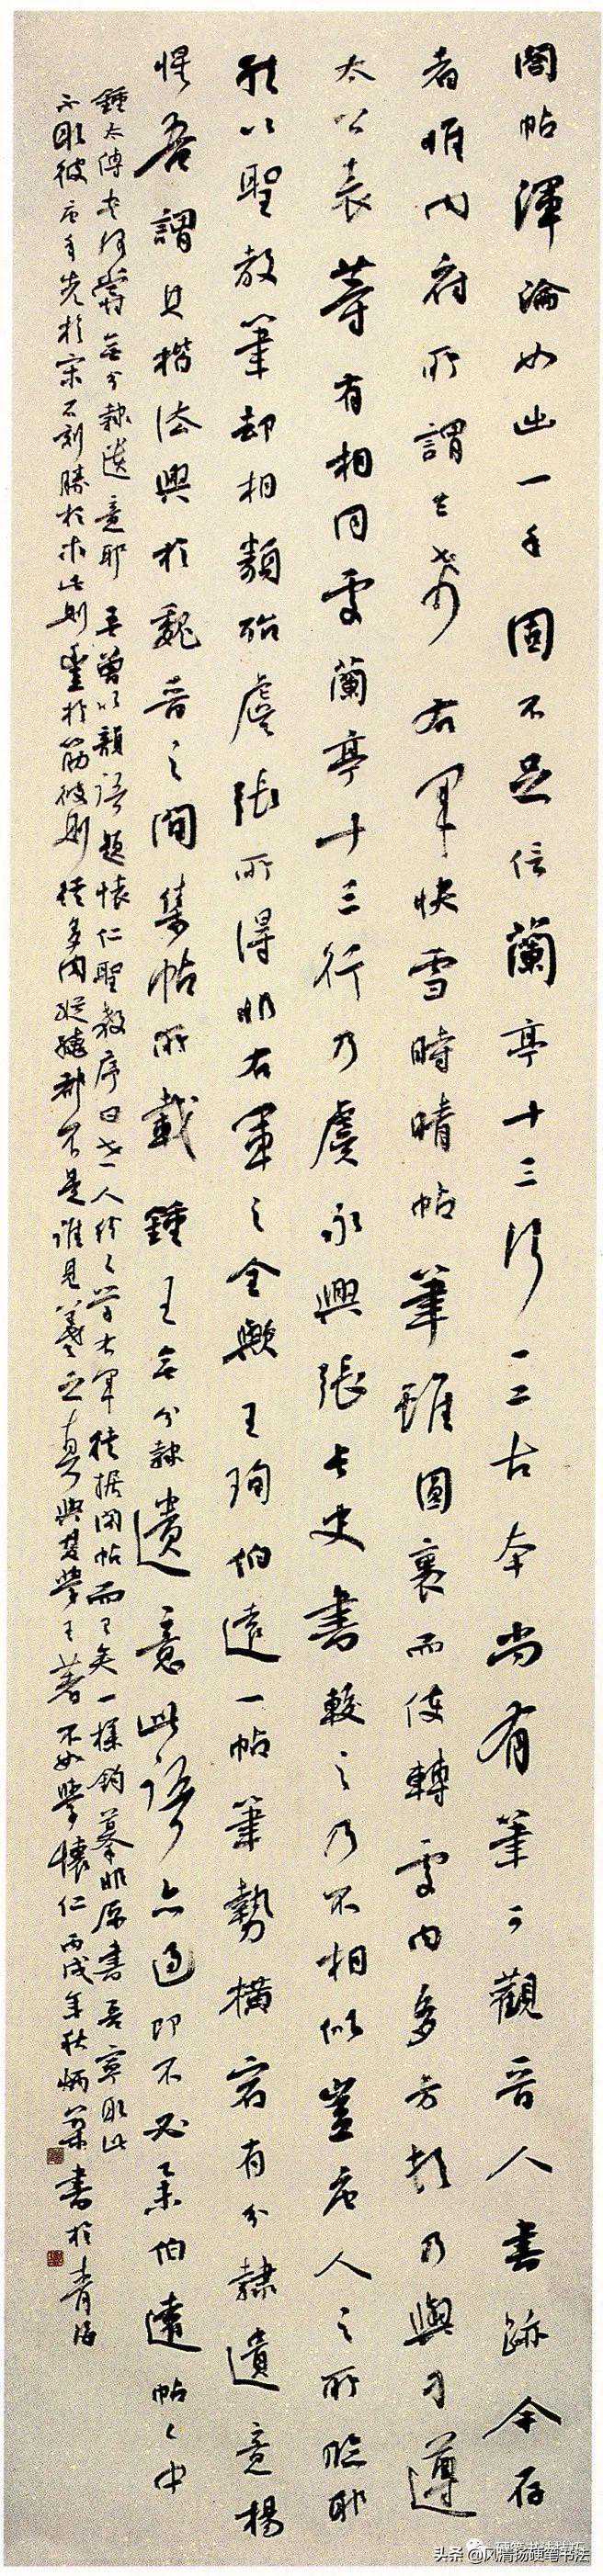 閣帖渾淪如出一手固不足信蘭亭十三行一二古本尚有筆可觀晉人書跡今存
者惟内府所謂三希右軍快雪時晴帖筆雖圓裹而使轉處内多方折乃與刁遵
太公表等有相同處蘭亭十三行乃虞永興張長史書較之乃不相似豈唐人之所臨耶
然以聖教筆却相類殆虞張所得非右軍之全歟王珣伯遠一帖筆勢橫宕有分隸遺意楊
惺吾謂其楷法興於魏晉之間集帖所載鍾王無分隸遺意此語亦過即不必舉伯遠帖帖中
鍾太傅書何嘗無分隸遺意耶吾曾以韻語題懷仁聖教序曰世人紛紛學右軍徒據閣帖而已矣一樣鈎摹非原書吾寧取此
不取彼唐手先於宋石刻勝於木此則重於筋彼則徒多肉縱據都不是誰見羲之真與其學王著不如學懷仁丙戌年秋炳
書於青
頭条 @风清扬硬笔书法